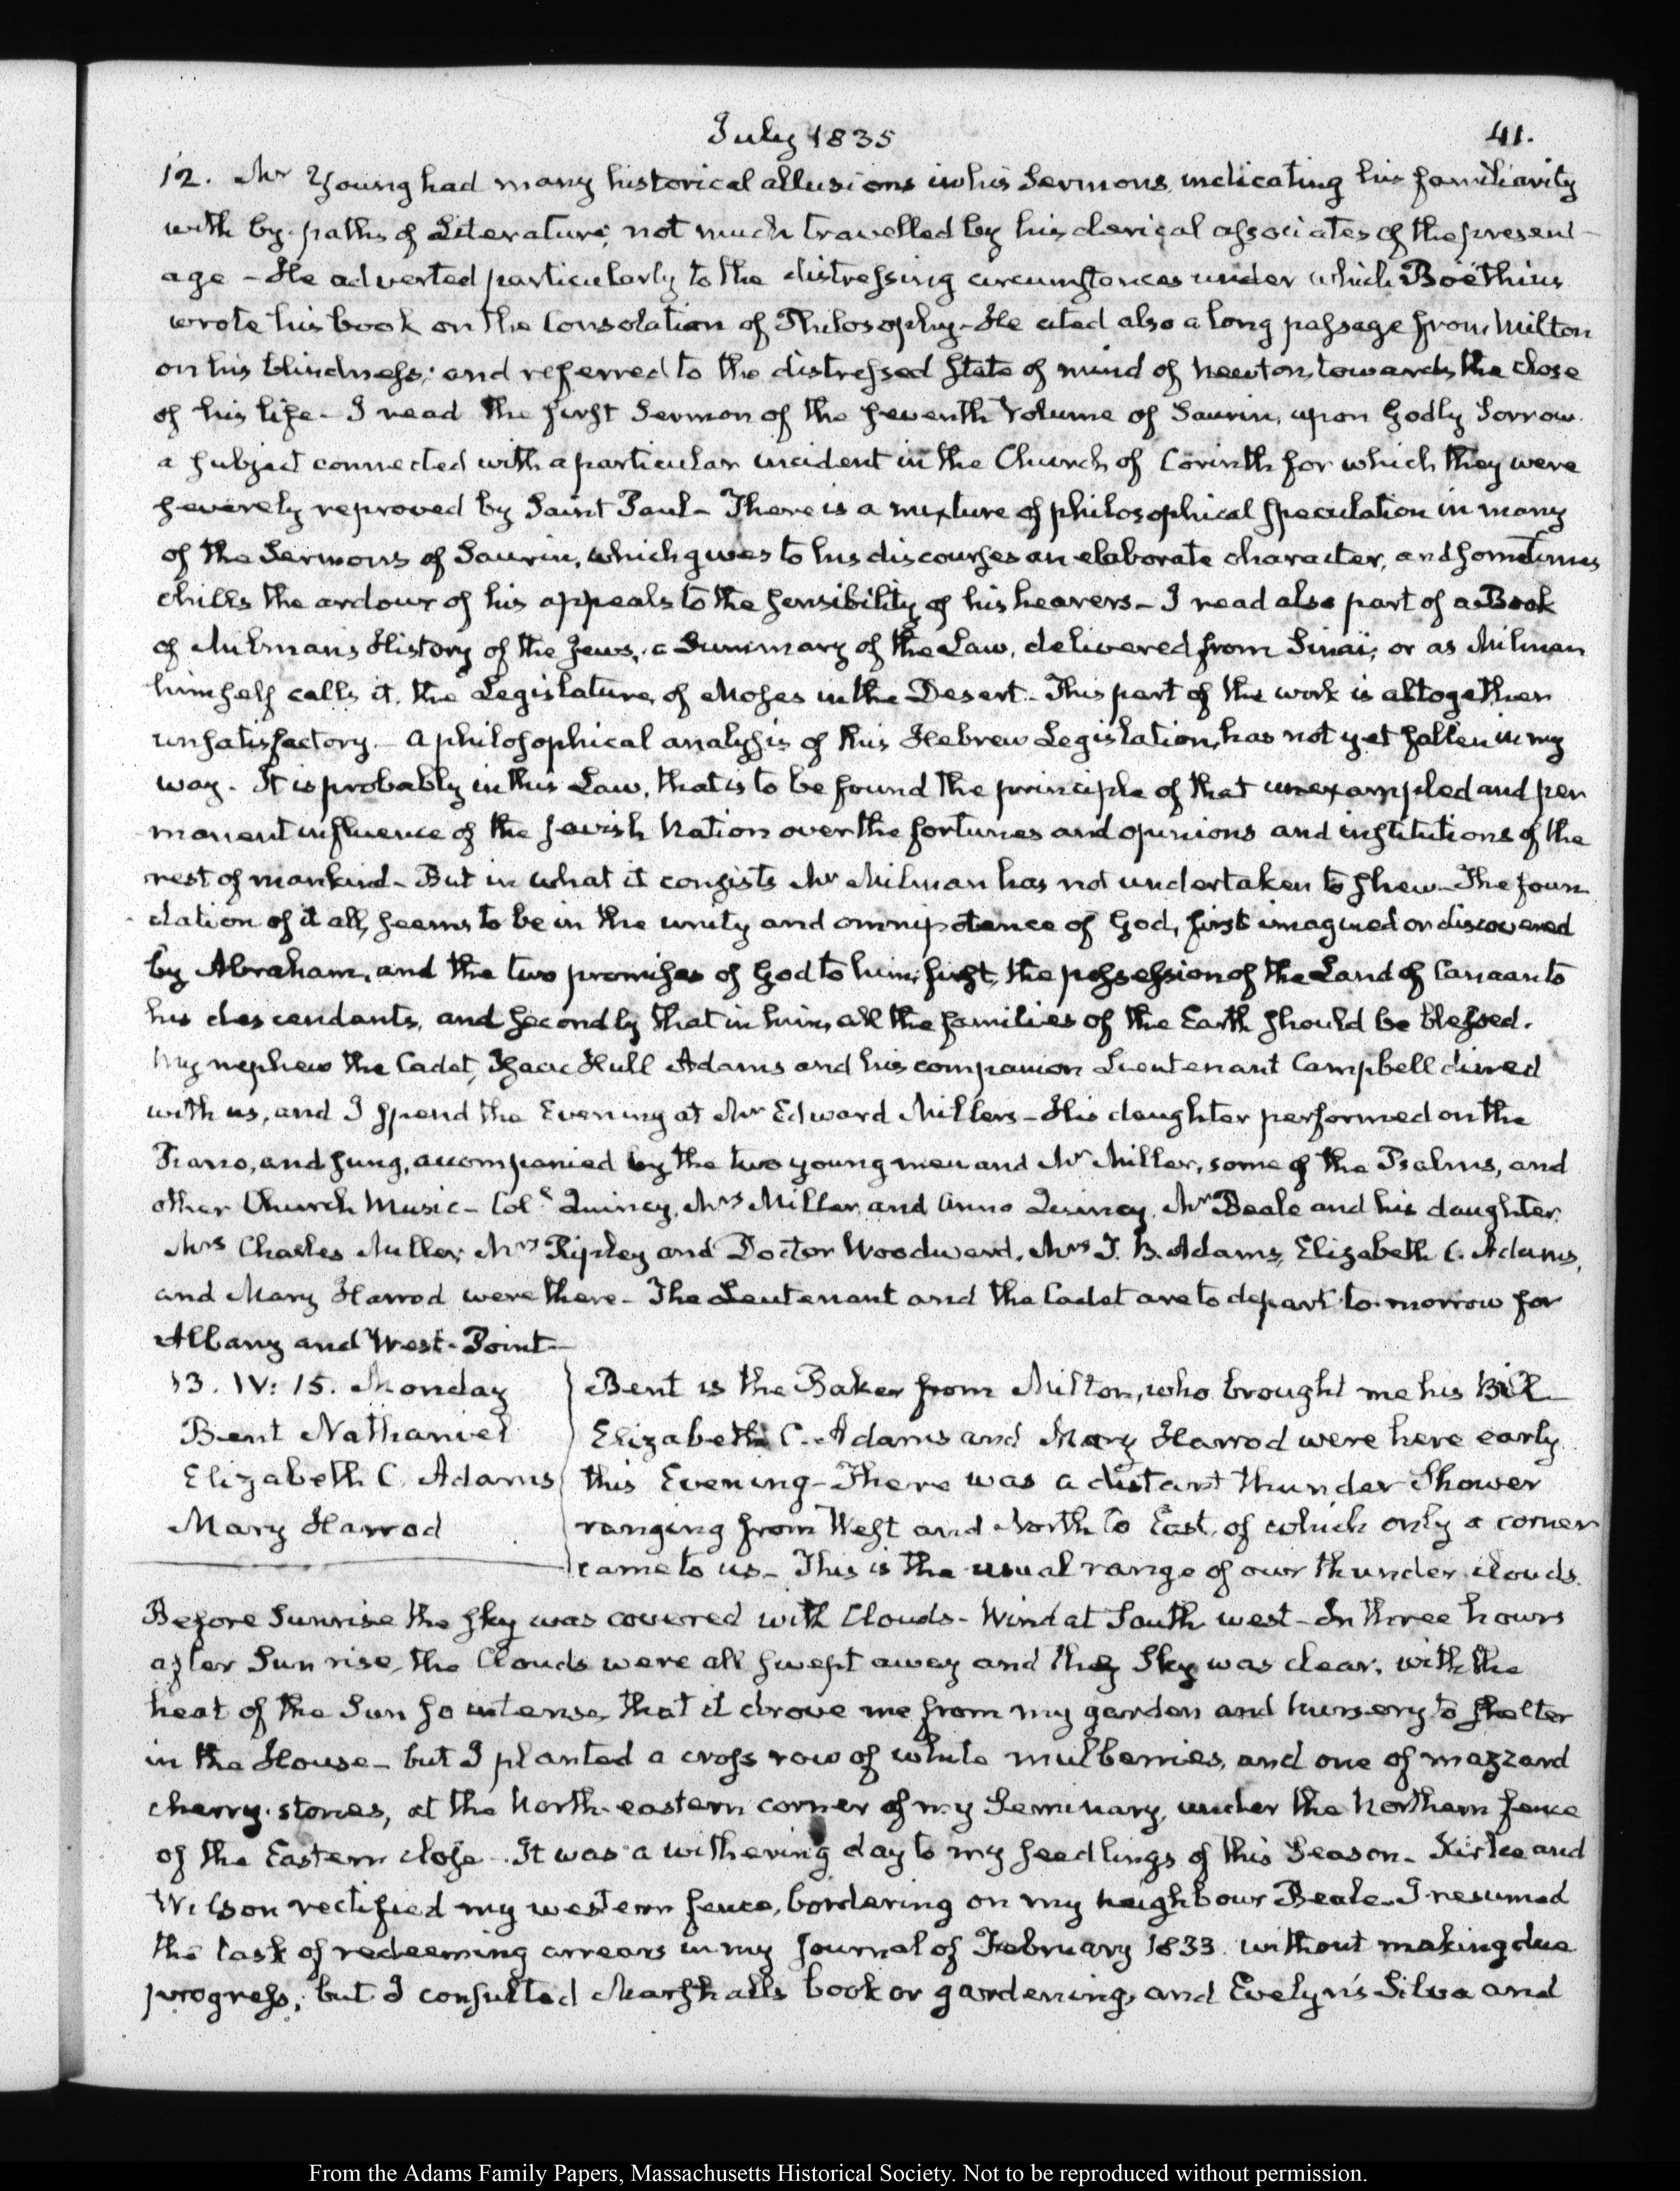 July 1835
41.
12. Mr Young had many historical allusions in his Sermons, indicating his familiarity
with by-paths of Literature, not much travelled by his clerical associates of the present
age - He adverted particularly to the distressing circumstances under which Boëthius
wrote his book on the Consolation of Philosophy - He cited also a long passage from Milton
on his blindness; and referred to the distressed State of mind of Newton, towards the close
of his life - I read the first Sermon of the seventh Volume of Saurin, upon Godly Sorrow.
a subject connected with a particular incident in the Church of Corinth for which they were
severely reproved by Saint Paul - There is a mixture of philosophical speculation in many
of the Sermons of Saurin, which gives to his discourses an elaborate character, and sometimes
chills the ardour of his appeals to the sensibility of his hearers - I read also part of a Book
of Milmans History of the Jews, a Summary of the Law, delivered from Sinai; or as Milman
himself calls it, the Legislature, of Moses in the Desert - This part of the work is altogether
unsatisfactory - a philosophical analysis of this Hebrew Legislation, has not yet fallen in my
way. It is probably in this Law, that is to be found the principle of that unexampled and per
manent influence of the Jewish Nation over the fortunes and opinions and institutions of the
rest of mankind - But in what it consists Mr Milman has not undertaken to shew - The foun
dation of it all, seems to be in the unity and omnipotence of God, first imagined or discovered
by Abraham, and the two promises of God to him, first, the possession of the Land of Canaan to
his descendants, and secondly that in him, all the families of the Earth should be blessed.
My nephew the Cadet, Isaac Hull Adams and his companion Lieutenant Campbell dined
with us, and I spend the Evening at Mr Edward Millers - His daughter performed on the
Piano, and sung, accompanied by the two young men and Mr Miller, some of the Psalms, and
other Church Music - Coll Quincy, Mrs Miller, and Anna Quincy, Mr Beale and his daughter,
Mrs Charles Miller, Mrs Ripley and Doctor Woodward, Mrs T. B. Adams, Elizabeth C. Adams,
and Mary Harrod were there - The Leutenant and the Cadet are to depart to-morrow for
Albany and West-Point -
13. IV: 15. Monday
Bent Nathaniel
Elizabeth C. Adams
Mary Harrod
Bent is the Baker from Milton, who brought me his Bill
Elizabeth C. Adams and Mary Harrod were here early
this Evening - There was a distant thunder Shower
ranging from West and North to East, of which only a corner
came to us - This is the usual range of our thunder clouds.
Before Sunrise the sky was covered with Clouds - Wind at South west - In three hours
after Sun rise, the Clouds were all swept away and they Sky was clear, with the
heat of the Sun so intense, that it drove me from my garden and nursery to shelter
in the House - but I planted a cross row of white mulberries, and one of mazzard
cherry-stones, at the North-eastern corner of my Seminary, under the Northern fence
of the Eastern close - It was a withering day to my seedlings of this Season - Kirtee and
Wilson rectified my western fence, bordering on my neighbour Beale - I resumed
the task of redeeming arrears in my Journal of February 1833 without making due
progress; but I consulted Marshalls book on gardening, and Evelyn's Silva and
From the Adams Family Papers, Massachusetts Historical Society. Not to be reproduced without permission.